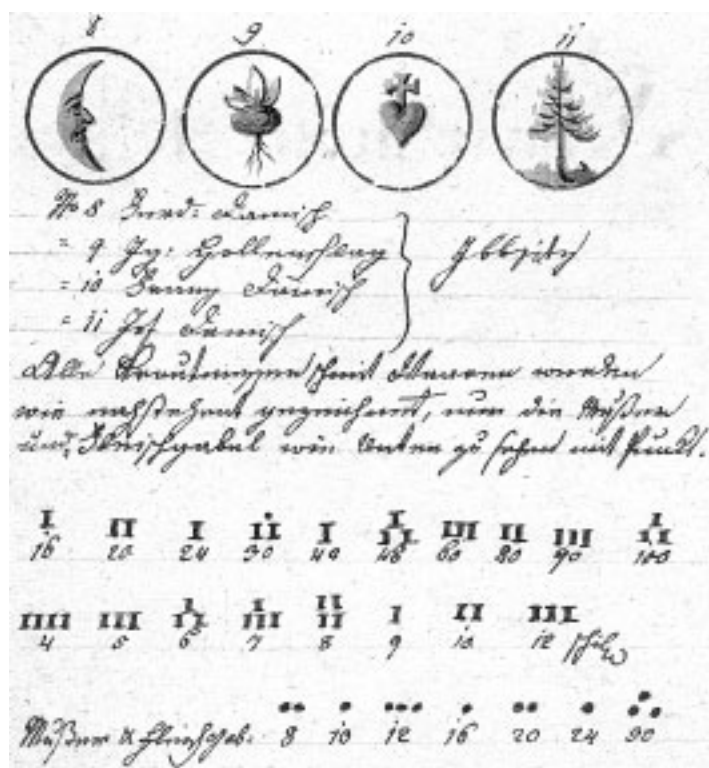 8 9 10 11
No 8 Ferd: Damisch
= 9 Ig: Hollenschlag
= 10 Franz Damisch
= 11 Jos Damisch
Ybbsitz
Alle Krautmesserschmit Waaren werden
wie nachstehent gezeichnet, nur die Messer
und Fleischgabel wie Unten zu sehen mit Punkt.
I II I II I I II III II III I II
16 20 24 30 40 48 60 80 90 100
IIII III I II I III II II I II III
4 5 6 7 8 9 10 12
Messer & Fleischgab:
8 10 12 16 20 24 90